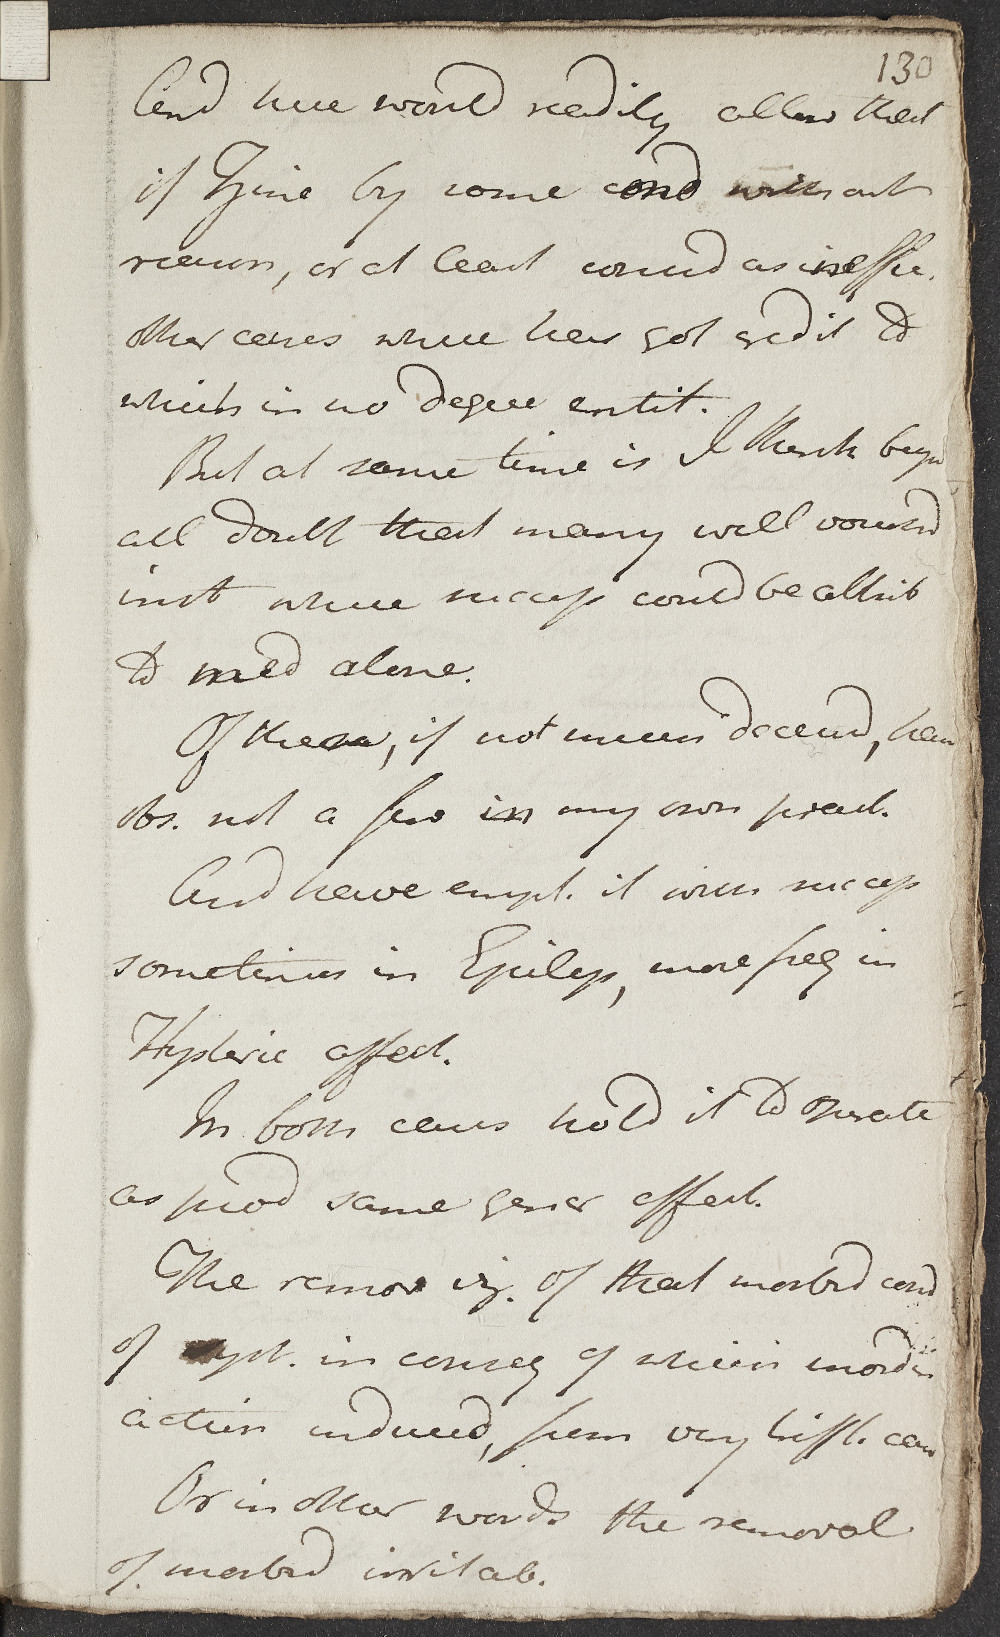 130
And here would readily allow that
if Zinc by some cond without
reason, or at least consid as ineffic.
Other cases where has got credit to
which in no degree entit.
But at same time is I think beyo
all doubt that many well vouched
inst where success could be attrib
to med alone.
Of these, if not much deceived, have
obs. not a few in my own pract.
And have empl. it with success
sometimes in Epileps, more freq in
Hysteric affect.
In both cases hold it to operate
as prod same gener effect.
The remov of that morbid cond
of syst. in conseq of which inord
action induced, from very triffl. caus
Or in other words the removal
of morbid irritab.